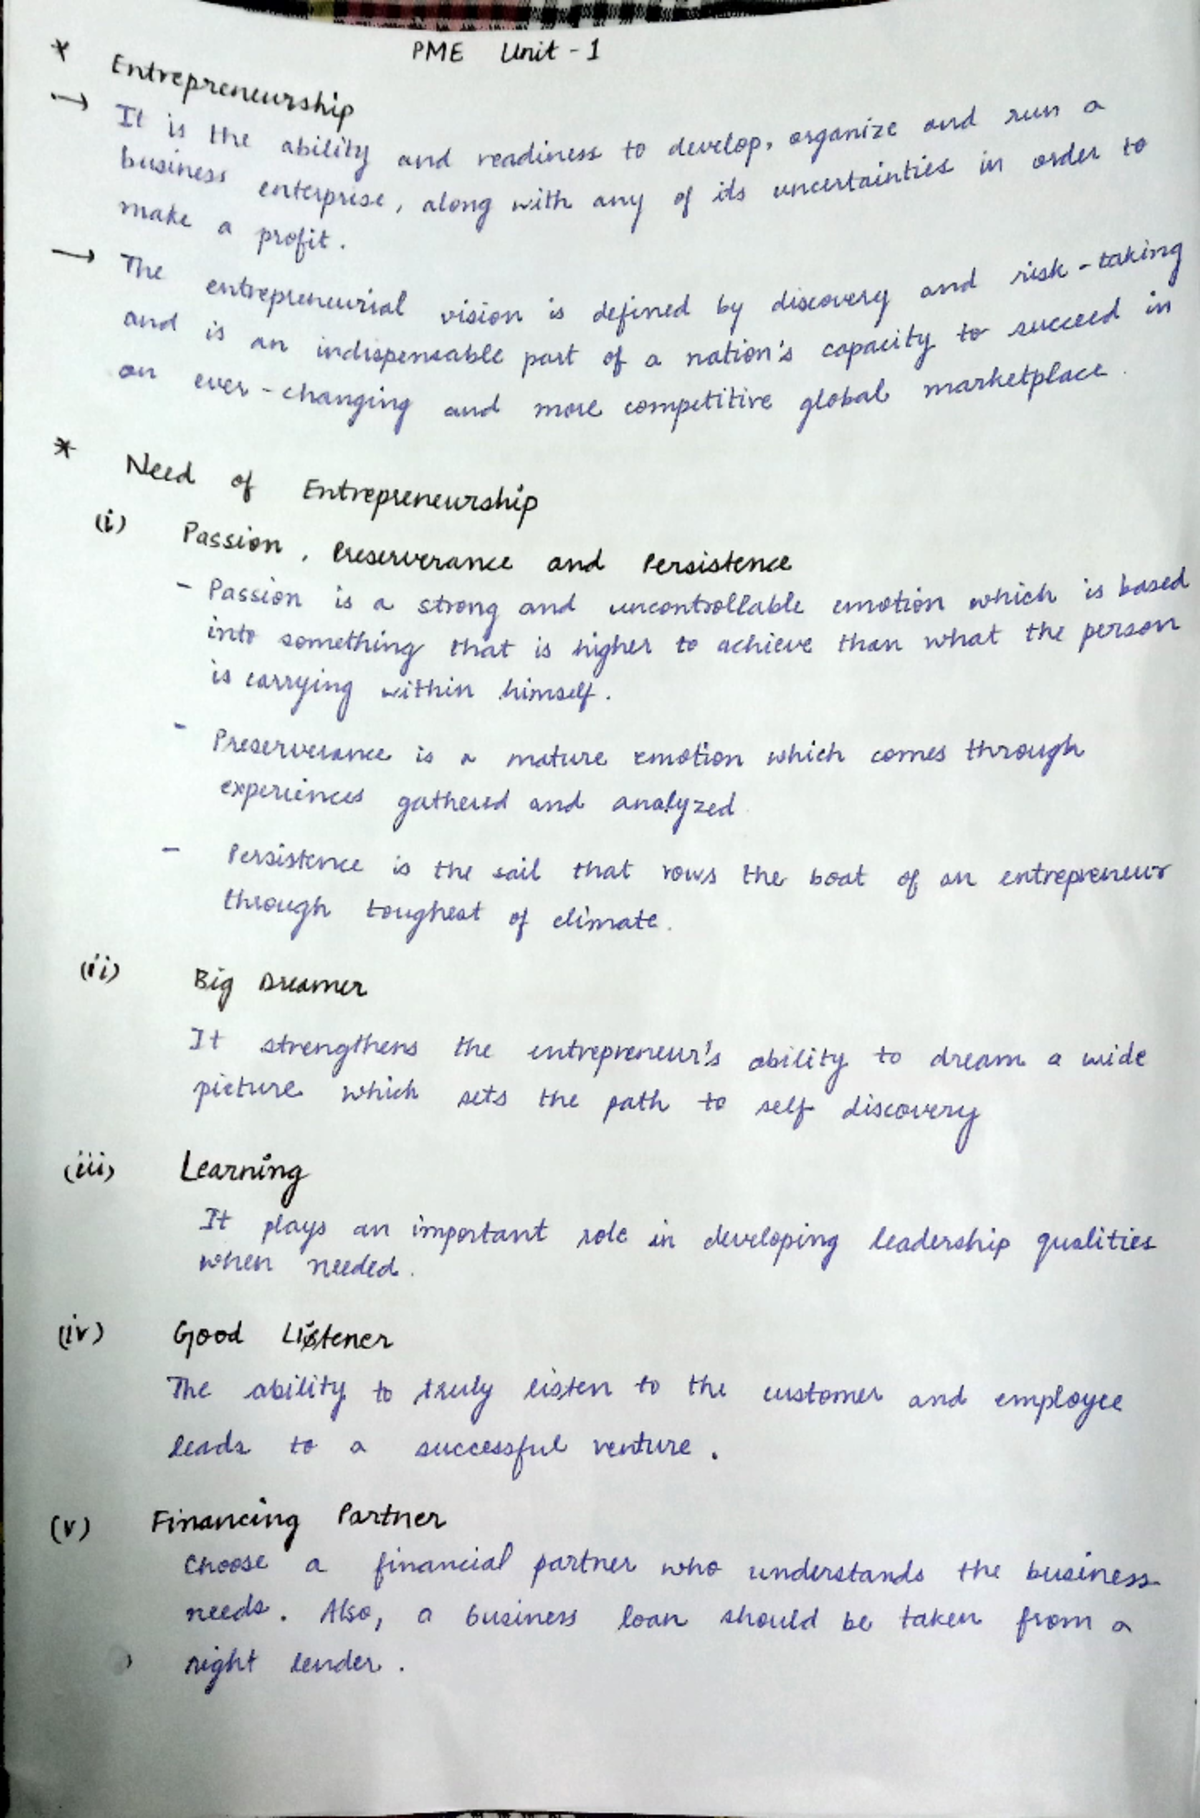 PME Unit - 1
* Entrepreneurship
→ It is the ability and readiness to develop, organize and run a
business enterprise, along with any of its uncertainties in order to
make a profit.
→ The entrepreneurial vision is defined by discovery and risk-taking
and is an indispensable part of a nation's capacity to succeed in
an ever-changing and more competitive global marketplace.
* Need of Entrepreneurship
(i) Passion, Preserverance and Persistence
- Passion is a strong and uncontrollable emotion which is based
into something that is higher to achieve than what the person
is carrying within himself.
- Preserverance is a mature emotion which comes through
experiences gathered and analyzed
- Persistence is the sail that rows the boat of an entrepreneur
through toughest of climate.
(ii) Big Dreamer
It strengthens the entrepreneur's ability to dream a wide
picture which sets the path to self discovery
(iii) Learning
It plays an important role in developing leadership qualities
when needed.
(iv) Good Listener
The ability to truly listen to the customer and employee
leads to a successful venture.
(v) Financing Partner
Choose a financial partner who understands the business
needs. Also, a business loan should be taken from a
right lender.